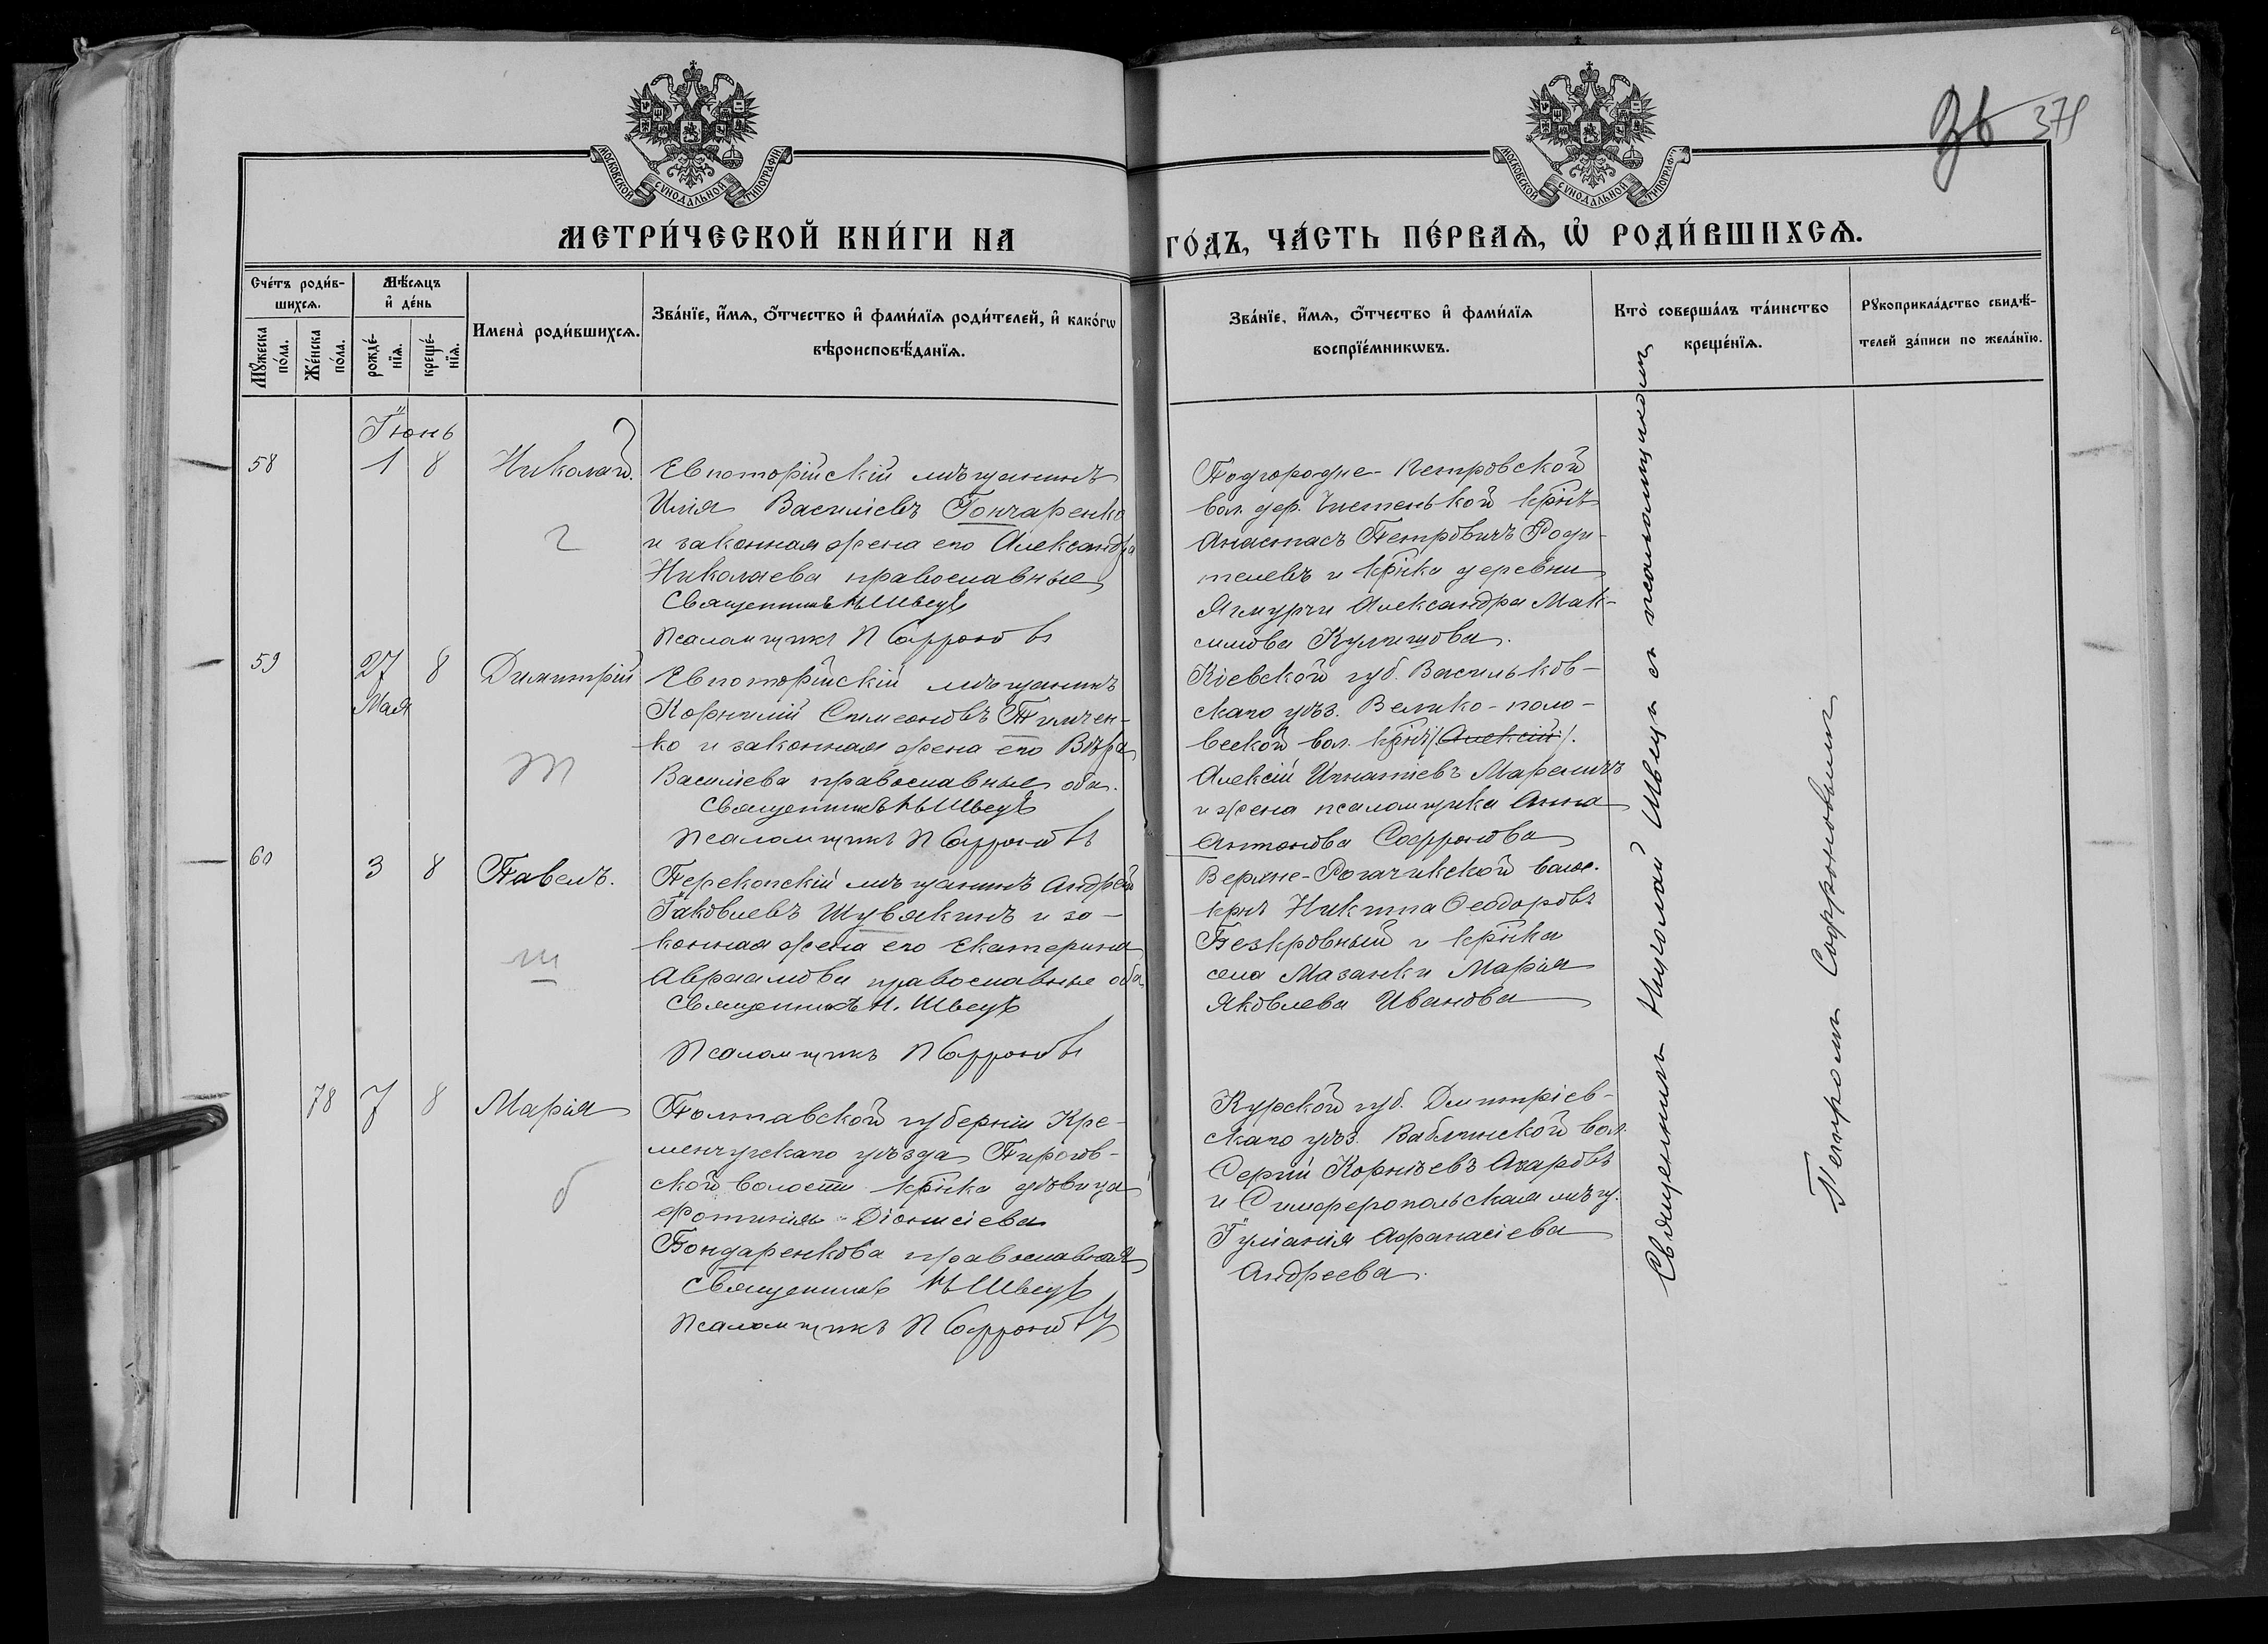 371
МОСКОВСКОЙ СѴНОДАЛЬНОЙ ТИПОГРАФІИ
МОСКОВСКОЙ СѴНОДАЛЬНОЙ ТИПОГРАФІИ
МЕТРИ́ЧЕСКОЙ КНИ́ГИ НА ГО́ДЪ, ЧА́СТЬ ПЕ́РВАѦ, Ѽ РОДИ́ВШИХСѦ.
Сче́тъ роди́в-
шихсѧ.
Мꙋ́жеска по́ла.
Же́нска по́ла.
Мѣ́сѧцъ
и҆ де́нь
рожде́-
нїѧ.
креще́-
нїѧ.
И҆мена̀ роди́вшихсѧ.
Зва́нїе, и҆́мѧ, ѻ҆́тчество и҆ фами́лїѧ роди́телей, и҆ како́гѡ
вѣроисповѣ́данїѧ.
Зва́нїе, и҆́мѧ, ѻ҆́тчество и҆ фами́лїѧ
воспрїе́мникѡвъ.
Кто̀ соверша́лъ та́инство
креще́нїѧ.
Рꙋкоприкла́дство свидѣ́-
телей за́писи по жела́нїю.
Іюнь
58 1 8 Николай.
Евпаторійскій мѣщанинъ
Илія Василіевъ Гончаренко
и законная жена его Александра
Николаева православные
Священникъ Н Швецъ
Псаломщикъ П Софроновъ
Подгородне-Петровской
вол. дер. Чистенькой кр̄нъ
Анастасъ Петровичъ Роди-
телевъ и кр̄нка деревни
Александра Мак-
симова
59 27 8 Димитрій
Мая
Евпаторійскій мѣщанинъ
Корнилій Симеоновъ Тимчен-
ко и законная жена его Вѣра
Василіева православные оба.
Священникъ Н Швецъ
Псаломщикъ П Софроновъ
Кіевской губ. Васильков-
скаго уѣз. Велико-поло-
вской вол. кр̄нъ (Алексій).
Алексій Игнатіевъ
и жена псаломщика Анна
Антонова Софронова
60 3 8 Павелъ.
Перекопскій мѣщанинъ Андрей
Іаковлевъ Шувякинъ и за-
конная жена его Екатерина
Авраамова православные оба
Священникъ Н. Швецъ
Псаломщикъ П Софроновъ
Верхне-Рогачикской волос.
крнъ Никита Ѳеодоровъ
Безкровный и кр̄нка
села Мазанки Марія
Яковлева Иванова
78 7 8 Марія
Полтавской губерніи Кре-
менчугскаго уѣзда Пирогов-
ской волости кр̄нка дѣвица
Фотинія Діонисіева
Бондаренкова православная
Священникъ Н Швецъ
Псаломщикъ П Софроновъ
Курской губ. Дмитріев-
скаго уѣз. вол.
Сергій Корнѣевъ Азаровъ
и Симферопольская мѣщ.
Іуліанія Афанасіева
Андреева.
Священникъ Николай Швецъ съ псаломщикомъ
Петромъ Софроновымъ
г
т
ш
б